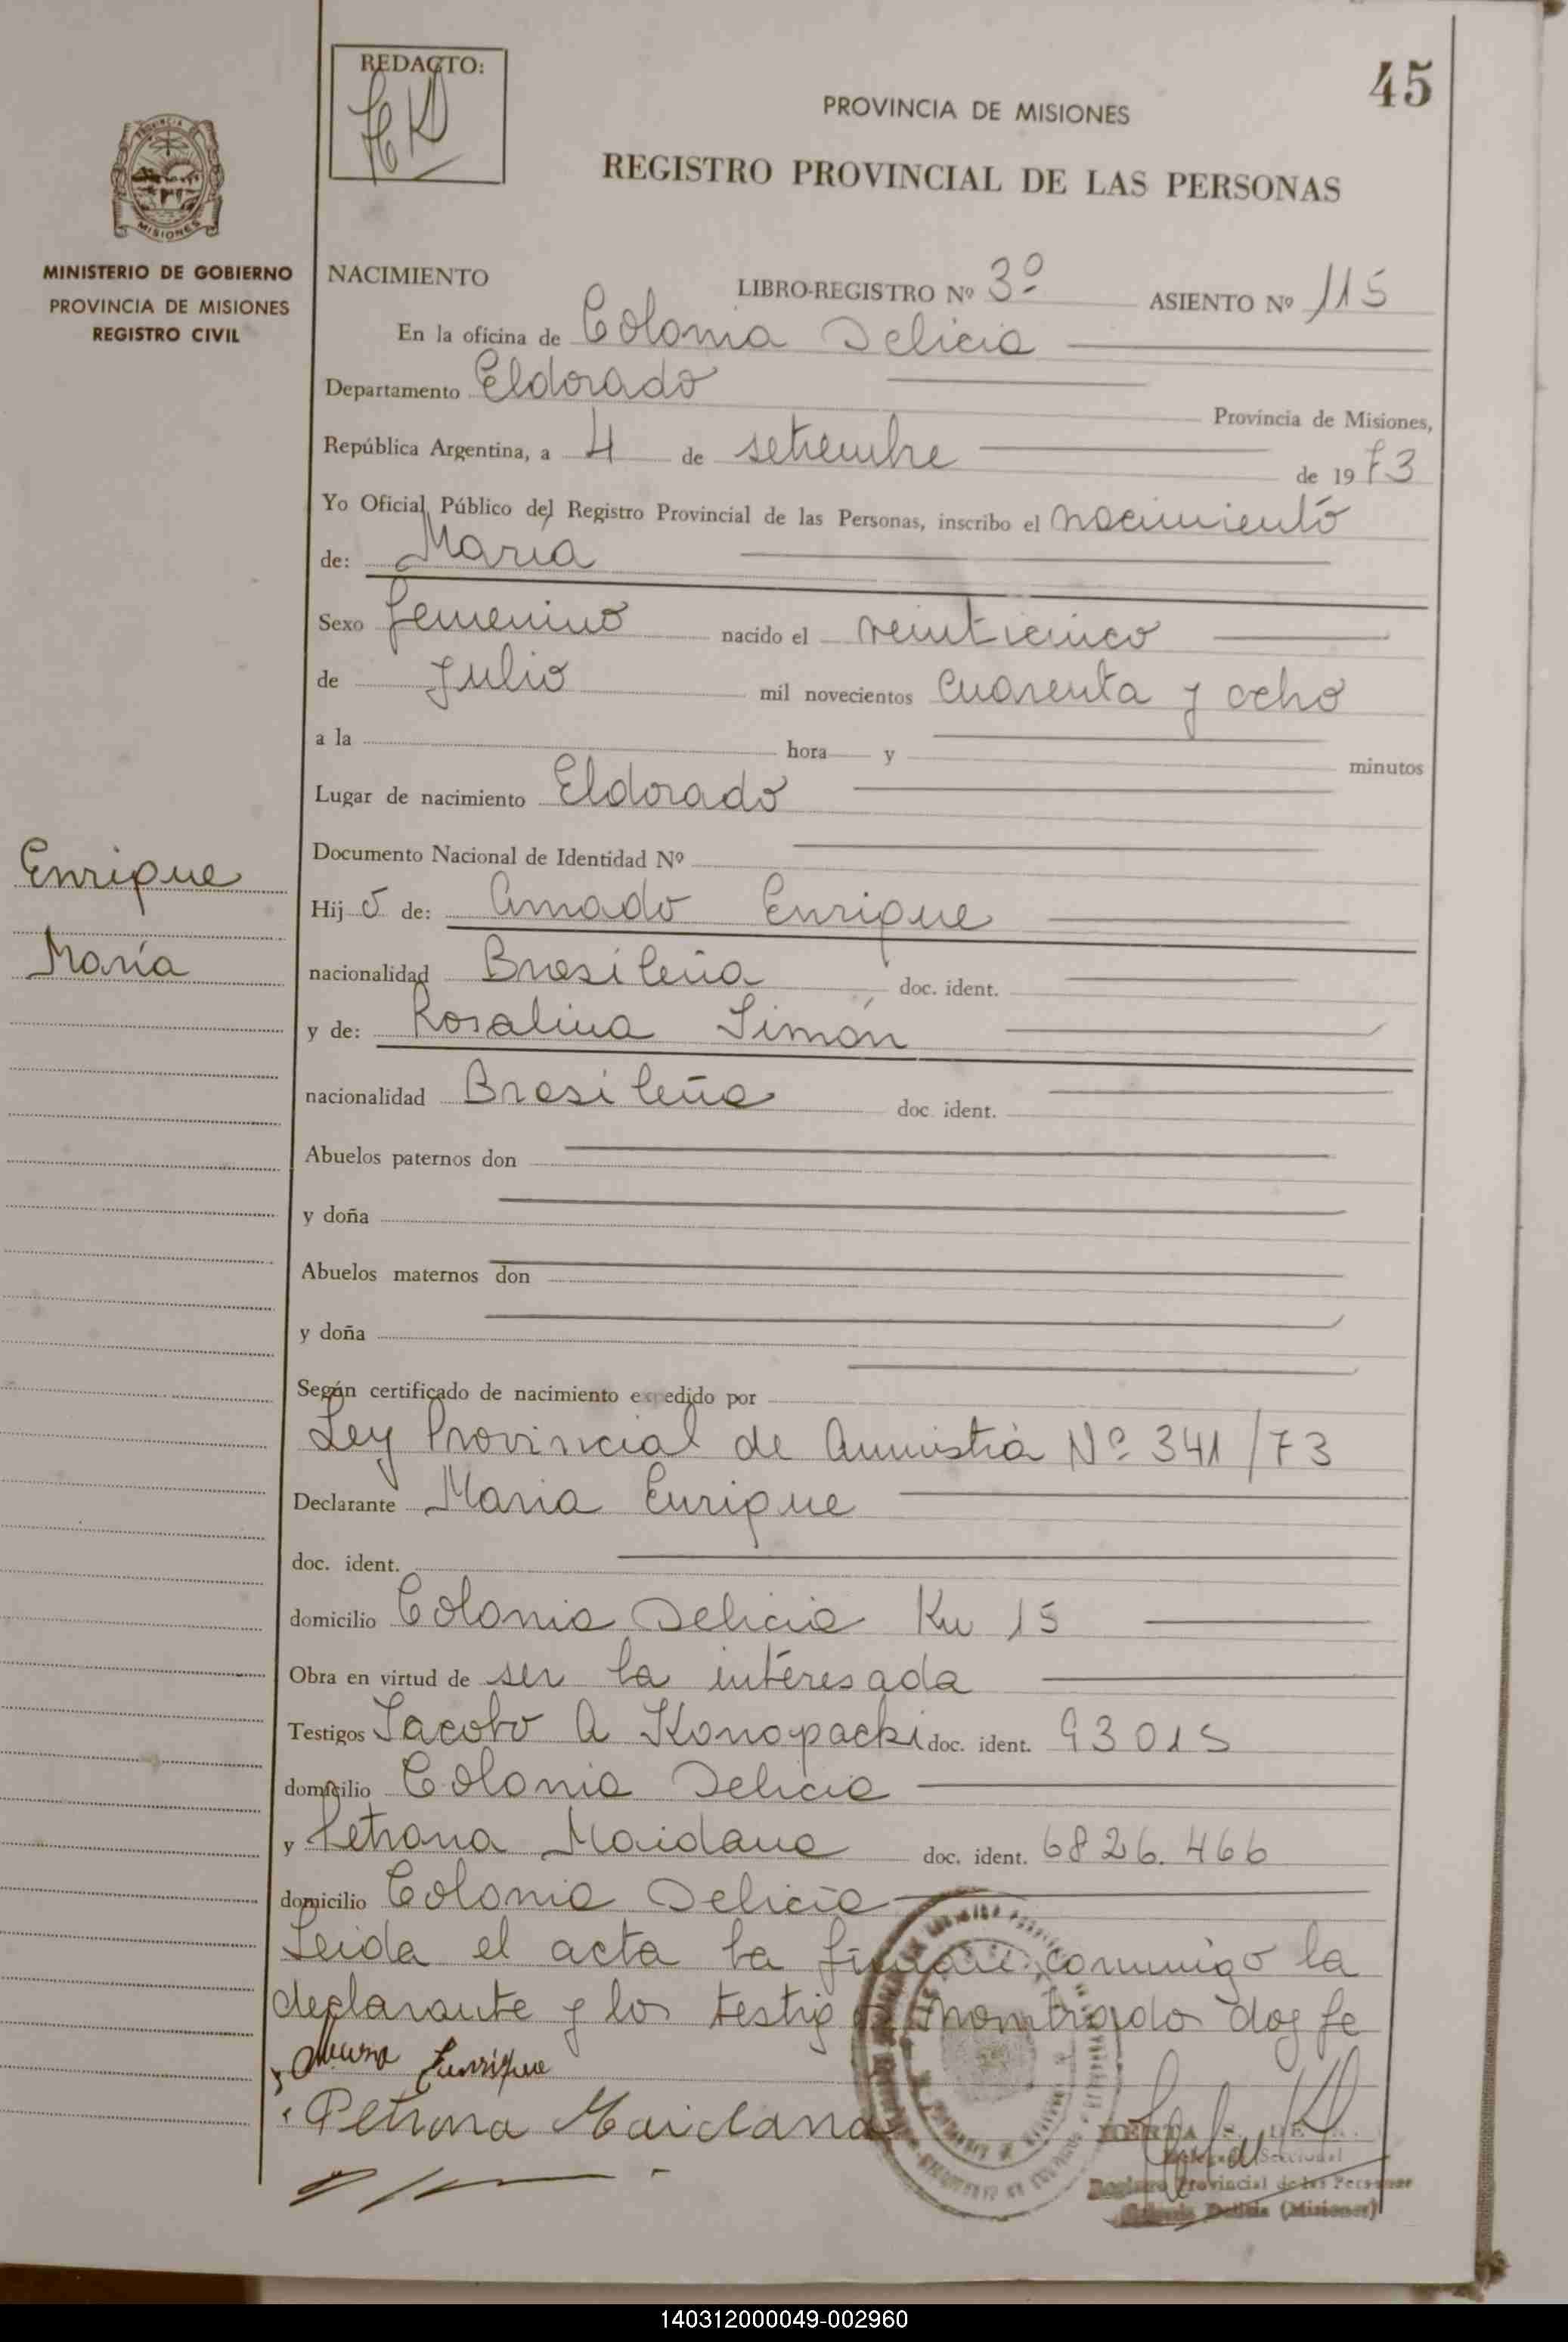 REDACTO:
45
PROVINCIA DE MISIONES
REGISTRO PROVINCIAL DE LAS PERSONAS
MISIONES
MINISTERIO DE GOBIERNO
PROVINCIA DE MISIONES
REGISTRO CIVIL
NACIMIENTO LIBRO-REGISTRO Nº 3º ASIENTO Nº 115
En la oficina de Colonia Delicia
Departamento Eldorado Provincia de Misiones,
República Argentina, a 4 de setiembre de 1973
Yo Oficial Público del Registro Provincial de las Personas, inscribo el nacimiento
de: María
Sexo femenino nacido el veinticinco
de Julio mil novecientos cuarenta y ocho
a la hora y minutos
Lugar de nacimiento Eldorado
Documento Nacional de Identidad Nº
Enrique
María
Hijo de: Amado Enrique
nacionalidad Brasileña doc. ident.
y de: Rosalina Simón
nacionalidad Brasileña doc. ident.
Abuelos paternos don
y doña
Abuelos maternos don
y doña
Según certificado de nacimiento expedido por
Ley Provincial de Amnistía Nº 341/73
Declarante Maria Enrique
doc. ident.
domicilio Colonia Delicia Km 15
Obra en virtud de ser la interesada
Testigos Jacobo A Konopacki doc. ident. 93015
domicilio Colonia Delicia
y Petrona Maidana doc. ident. 6826.466
domicilio Colonia Delicia
Leida el acta la firman conmigo la
declarante y los testigos nombrados doy fe
Enrique
Petrona Maidana
Registro Provincial de las Personas
Colonia Delicia (Misiones)
140312000049-002960